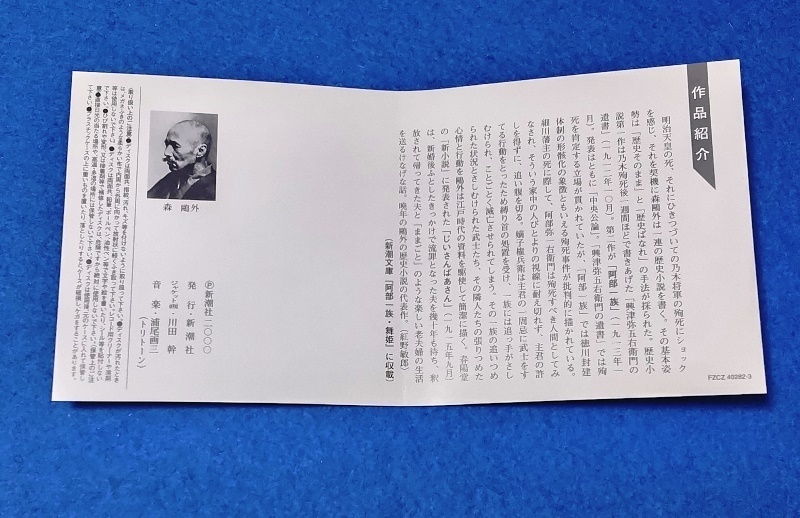 作品紹介
明治天皇の死、それにひきつづいての乃木将軍の殉死にショック
を感じ、それを契機に森鷗外は一連の歴史小説を書く。その基本姿
勢は「歴史そのまま」と「歴史ばなれ」の手法が採られた。歴史小
説第一作は乃木殉死後一週間ほどで書きあげた「興津弥五右衛門の
遺書」(一九一二年一〇月)。第二作が「阿部一族」(一九一三年一
月)。発表はともに「中央公論」。「興津弥五右衛門の遺書」では殉
死を肯定する立場が貫かれていたが、「阿部一族」では徳川封建
体制の形骸化の象徴ともいえる殉死事件が批判的に描かれている。
細川藩主の死に際して、阿部弥一右衛門は殉死すべき人間としてみ
なされ、そういう家中の人びとよりの視線に耐え切れず、主君の許
しを得ずに、追い腹を切る。嫡子権兵衛は主君の一周忌に武士をす
てる行動をとったため縛り首の処置を受け、一族には追っ手がさし
むけられ、ことごとく滅亡させられてしまう。その一族の追いつめ
られた状況とさしむけられた武士たち、その隣人たちの張りつめた
心情と行動を鷗外は江戸時代の資料を駆使して簡潔に描く。春陽堂
の「新小説」に発表された「じいさんばあさん」(一九一五年九月)
は、新婚後ふとしたきっかけで流罪となった夫を幾十年も待ち、釈
放されて帰ってきた夫と「ままごと」のような楽しい老夫婦の生活
を送るけなげな話。晩年の鷗外の歴史小説の代表作。(紅野敏郎)
(新潮文庫「阿部一族・舞姫」に収載)
FZCZ 40282-3
森 鷗外
Ⓟ新潮社二〇〇〇
発 行・新 潮 社
ジャケット画・川田 幹
音 楽・浦尾画三
(トリトーン)